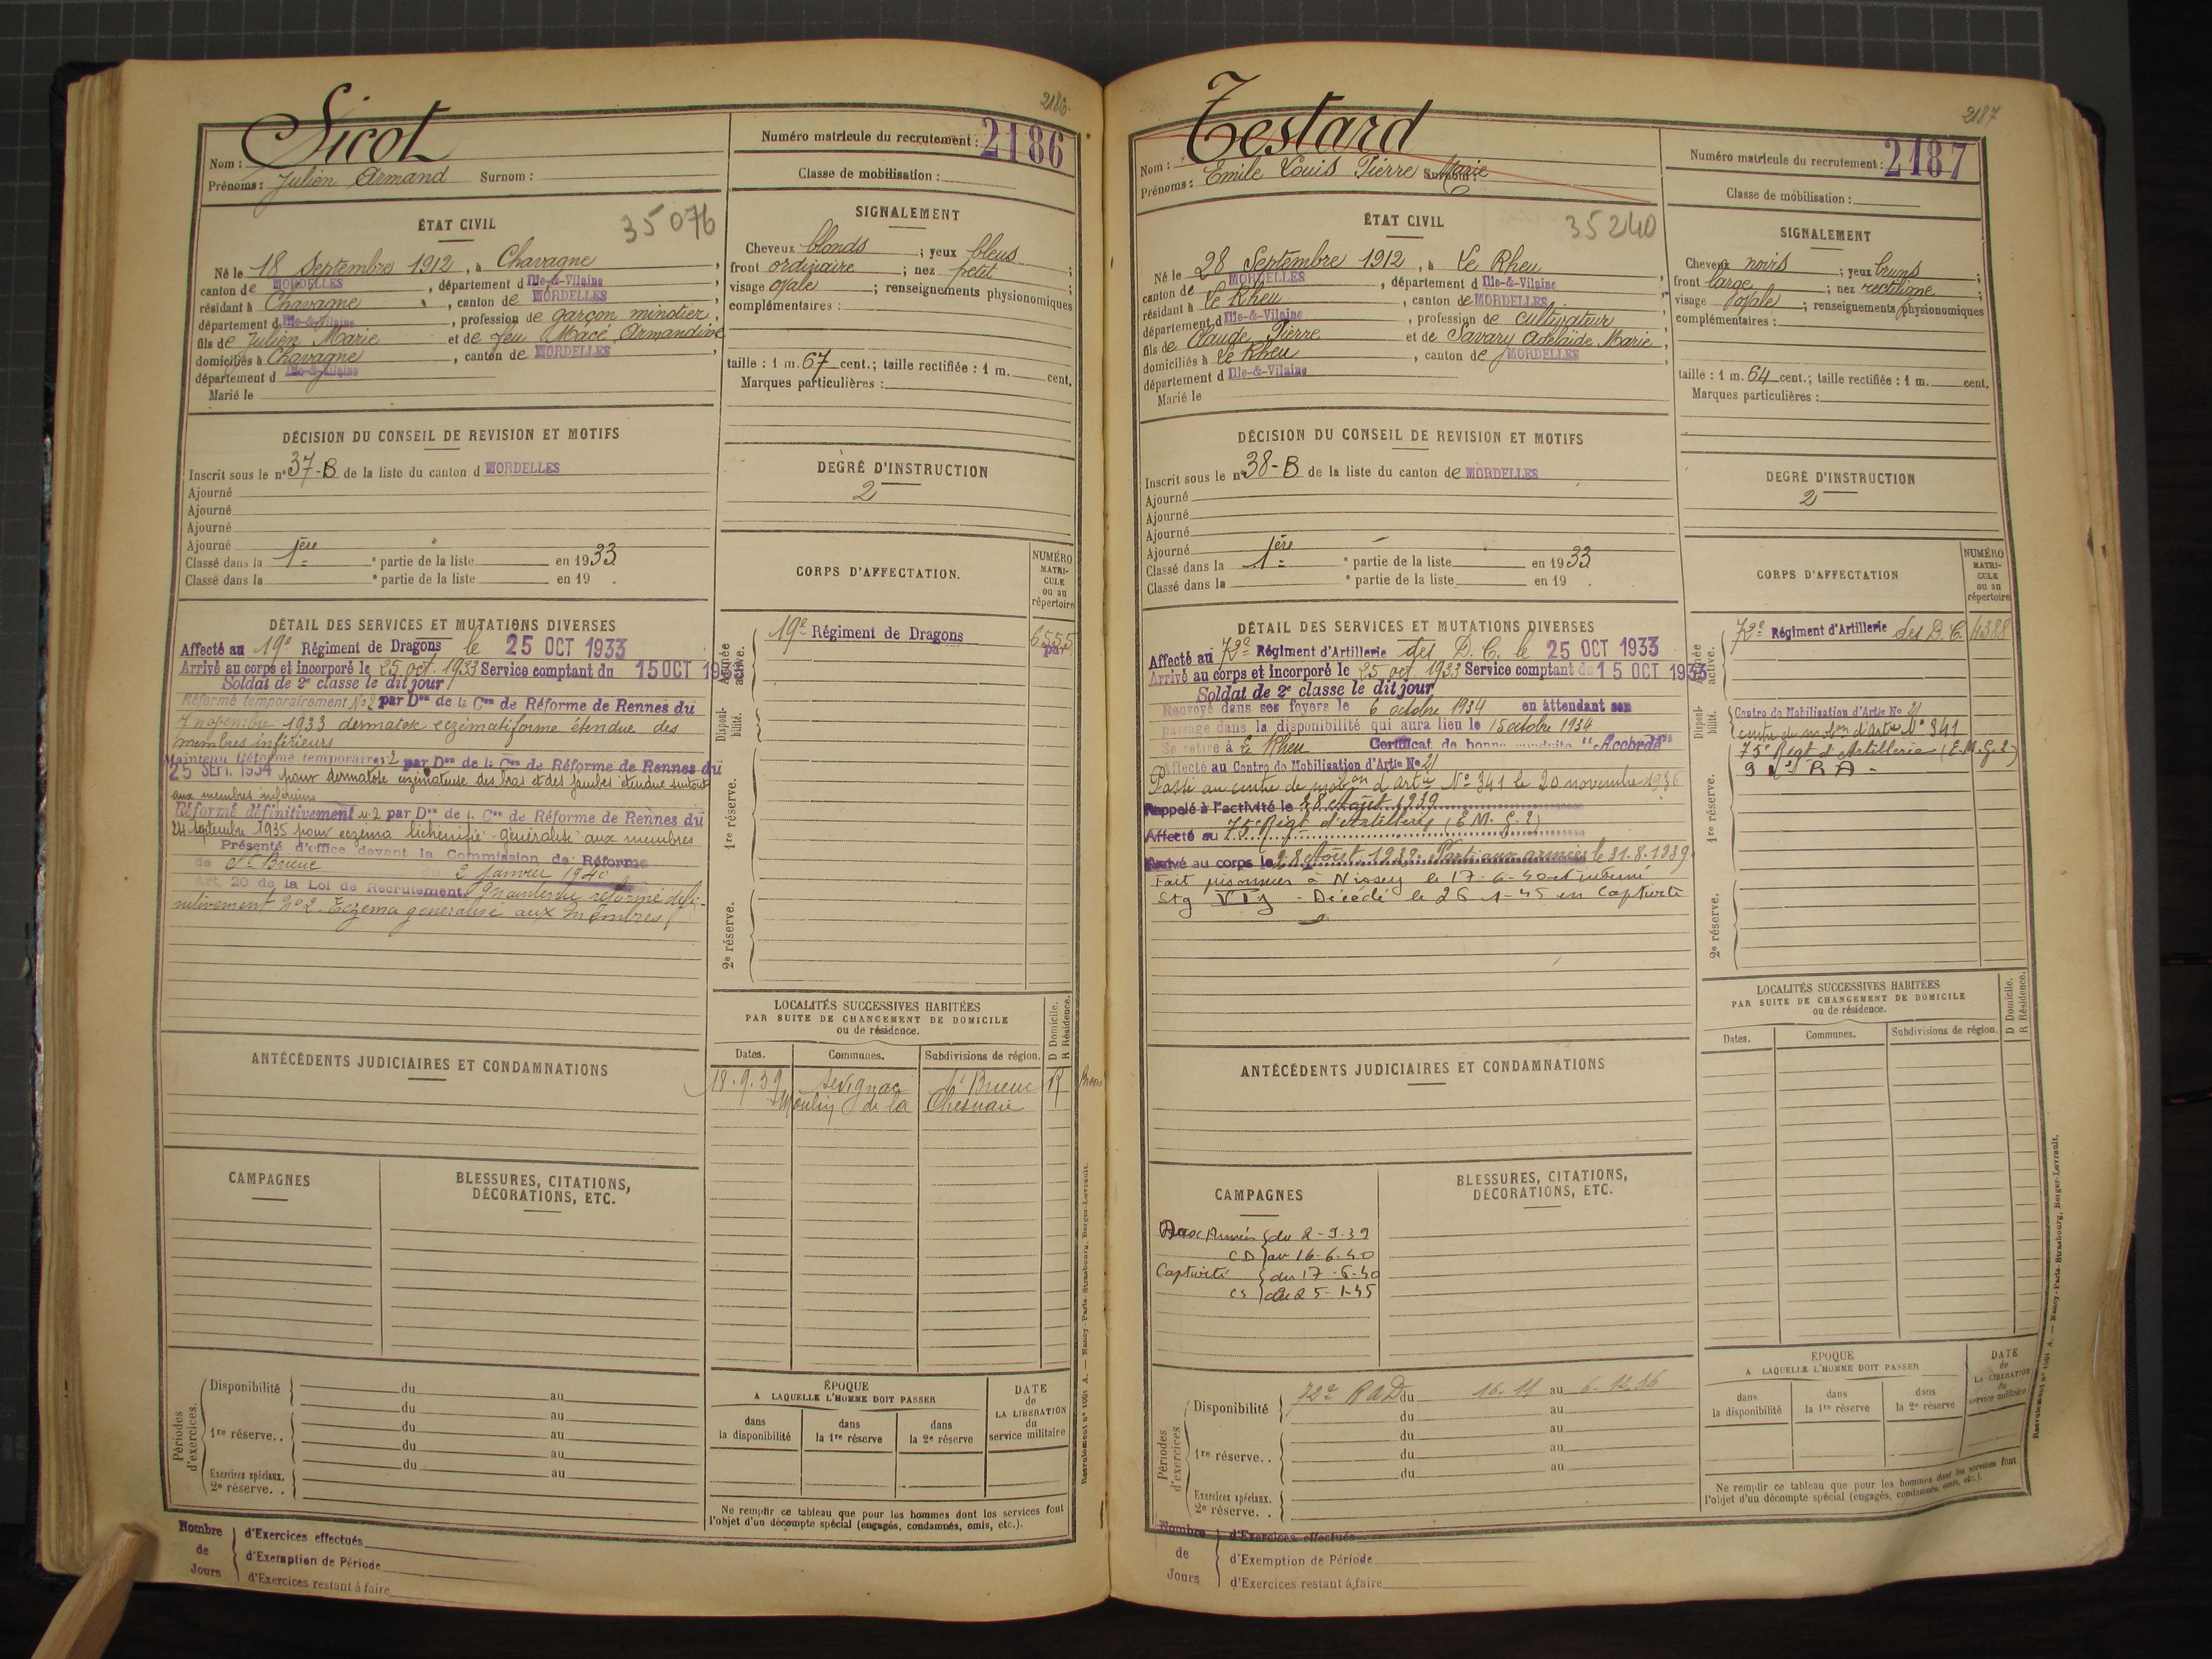 2186.
Sicot
Nom :
Prénoms : Julien Armand Surnom :
Numéro matricule du recrutement : 2186
Classe de mobilisation :
ÉTAT CIVIL
35076
Né le 18 Septembre 1912, à Chavagne,
canton de MORDELLES, département d Ille-&-Vilaine,
résidant à Chavagne, canton de MORDELLES
département d Ille-&-Vilaine, profession de garçon minotier,
fils de Julien Marie et de feu Macé Armandine
domiciliés à Chavagne, canton de MORDELLES,
département d Ille-&-Vilaine
Marié le
SIGNALEMENT
Cheveux blonds ; yeux bleus ;
front ordinaire ; nez petit ;
visage ovale ; renseignements physionomiques
complémentaires :
taille : 1 m. 67 cent.; taille rectifiée : 1 m. cent.
Marques particulières :
DÉCISION DU CONSEIL DE REVISION ET MOTIFS
Inscrit sous le nº 37-B de la liste du canton d MORDELLES
Ajourné
Ajourné
Ajourné
Ajourné
Classé dans la 1ère partie de la liste en 1933
Classé dans la e partie de la liste en 19 .
DEGRÉ D'INSTRUCTION
2
CORPS D'AFFECTATION.
NUMÉRO
MATRI-
CULE
ou au
répertoire
Armée
active.
19e Régiment de Dragons
6555
par
Disponi-
bilité.
1re réserve.
2e réserve.
DÉTAIL DES SERVICES ET MUTATIONS DIVERSES
Affecté au 19e Régiment de Dragons le 25 OCT 1933
Arrivé au corps et incorporé le 25 oct. 1933 Service comptant du 15 OCT 1933
Soldat de 2e classe le dit jour
Réformé temporairement Nº2 par Don de la Con de Réforme de Rennes du
7 novembre 1933 dermatose eczématiforme étendue des
membres inférieurs
Maintenu Réformé temporaire nº 2 par Don de la Con de Réforme de Rennes du
25 SEPT. 1934 pour dermatose eczémateuse des bras et des jambes étendue surtout
aux membres inférieurs
Réformé définitivement nº 2 par Don de la Con de Réforme de Rennes du
24 septembre 1935 pour eczema lichénifié généralisé aux membres
Présenté d'office devant la Commission de Réforme
de St Brieuc du 3 janvier 1940
Art. 20 de la Loi de Recrutement Maintenu réformé défi-
nitivement nº 2. Eczema généralisé aux membres
LOCALITÉS SUCCESSIVES HABITÉES
PAR SUITE DE CHANGEMENT DE DOMICILE
ou de résidence.
D Domicile.
R Résidence.
Dates. Communes. Subdivisions de région.
18.9.39 Sévignac St Brieuc R
Moulin de la Chesnaie
ANTÉCÉDENTS JUDICIAIRES ET CONDAMNATIONS
CAMPAGNES
BLESSURES, CITATIONS,
DÉCORATIONS, ETC.
Périodes
d'exercices.
Disponibilité du au
du au
1re réserve.. du au
du au
du au
Exercices spéciaux.
2e réserve. .
ÉPOQUE
A LAQUELLE L'HOMME DOIT PASSER
dans
la disponibilité
dans
la 1re réserve
dans
la 2e réserve
DATE
de
LA LIBÉRATION
du
service militaire
Ne remplir ce tableau que pour les hommes dont les services font
l'objet d'un décompte spécial (engagés, condamnés, omis, etc.).
Nombre
de
Jours
d'Exercices effectués
d'Exemption de Période
d'Exercices restant à faire
Recrutement nº 1001 A. — Nancy-Paris-Strasbourg, Berger-Levrault.
2187
Testard
Nom :
Prénoms : Emile Louis Pierre Marie Surnom :
Numéro matricule du recrutement : 2187
Classe de mobilisation :
ÉTAT CIVIL
35240
Né le 28 Septembre 1912, à Le Rheu,
canton de MORDELLES, département d Ille-&-Vilaine,
résidant à Le Rheu, canton de MORDELLES,
département d Ille-&-Vilaine, profession de cultivateur,
fils de Claude Pierre et de Savary Adélaïde Marie,
domiciliés à Le Rheu, canton de MORDELLES,
département d Ille-&-Vilaine
Marié le
SIGNALEMENT
Cheveux noirs ; yeux bruns ;
front large ; nez rectiligne ;
visage ovale ; renseignements physionomiques
complémentaires :
taille : 1 m. 64 cent.; taille rectifiée : 1 m. cent.
Marques particulières :
DÉCISION DU CONSEIL DE REVISION ET MOTIFS
Inscrit sous le nº 38-B de la liste du canton de MORDELLES
Ajourné
Ajourné
Ajourné
Ajourné
Classé dans la 1ère partie de la liste en 1933
Classé dans la e partie de la liste en 19 .
DEGRÉ D'INSTRUCTION
2
CORPS D'AFFECTATION
NUMÉRO
MATRI-
CULE
ou au
répertoire
Armée
active.
72e Régiment d'Artillerie des D.C. 4388
Disponi-
bilité.
Centre de Mobilisation d'Artie Nº 21
centre de mobon d'artie Nº 341
1re réserve.
75e Régt d'Artillerie (E.M.G.2)
2e réserve.
DÉTAIL DES SERVICES ET MUTATIONS DIVERSES
Affecté au 72e Régiment d'Artillerie des D.C. le 25 OCT 1933
Arrivé au corps et incorporé le 25 oct. 1933 Service comptant du 15 OCT 1933
Soldat de 2e classe le dit jour
Renvoyé dans ses foyers le 6 octobre 1934 en attendant son
passage dans la disponibilité qui aura lieu le 15 octobre 1934
Se retire à Le Rheu Certificat de bonne conduite "Accordé"
Affecté au Centre de Mobilisation d'Artie Nº 21
Passé au centre de mobon d'artie Nº 341 le 20 novembre 1936
Rappelé à l'activité le 28 Août 1939
Affecté au 75e Régt d'Artillerie (E.M.G.2)
Arrivé au corps le 28 Août 1939. Parti aux armées le 31.8.1939
Fait prisonnier à Nissey le 17-6-40 et interné
Stg VI J - Décédé le 26-1-45 en Captivité
LOCALITÉS SUCCESSIVES HABITÉES
PAR SUITE DE CHANGEMENT DE DOMICILE
ou de résidence.
D Domicile.
R Résidence.
Dates. Communes. Subdivisions de région.
ANTÉCÉDENTS JUDICIAIRES ET CONDAMNATIONS
CAMPAGNES
Armées du 2-9-39
CD au 16-6-40
Captivité du 17-6-40
CS au 25-1-45
BLESSURES, CITATIONS,
DÉCORATIONS, ETC.
Périodes
d'exercices
Disponibilité 72e RAD du 16-11 au 6-12.36
du au
1re réserve.. du au
du au
du au
Exercices spéciaux.
2e réserve. .
ÉPOQUE
A LAQUELLE L'HOMME DOIT PASSER
dans
la disponibilité
dans
la 1re réserve
dans
la 2e réserve
DATE
de
LA LIBÉRATION
du
service militaire
Ne remplir ce tableau que pour les hommes dont les services font
l'objet d'un décompte spécial (engagés, condamnés, omis, etc.).
Nombre
de
Jours
d'Exercices effectués
d'Exemption de Période
d'Exercices restant à faire
Recrutement nº 1001 A. — Nancy-Paris-Strasbourg, Berger-Levrault.